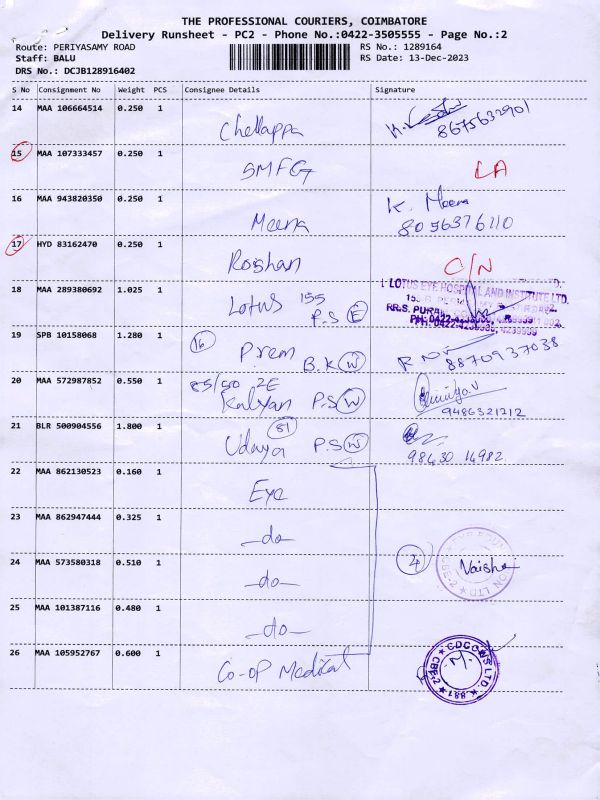 THE PROFESSIONAL COURIERS, COIMBATORE
Delivery Runsheet - PC2 - Phone No.:0422-3505555 - Page No.:2
Route: PERIYASAMY ROAD RS No.: 1289164
Staff: BALU RS Date: 13-Dec-2023
DRS No.: DCJB128916402
S No Consignment No Weight PCS Consignee Details Signature
14 MAA 106664514 0.250 1 Chellappa 8675632901
15 MAA 107333457 0.250 1 SMFG LA
16 MAA 943820350 0.250 1 Meena K. Meena
8056376110
17 HYD 83162470 0.250 1 Roshan O/N
18 MAA 289380692 1.025 1 Lotus 155
P.S E
LOTUS EYE HOSPITAL AND INSTITUTE LTD.
19 SPB 10158068 1.280 1 16 Prem B.K W
8870937038
20 MAA 572987852 0.550 1 85/50 2E
Kalyan P.S W
9486321212
21 BLR 500904556 1.800 1 81
Udaya P.S W
98430 14982
22 MAA 862130523 0.160 1 Eye
23 MAA 862947444 0.325 1 -do-
24 MAA 573580318 0.510 1 -do- 4 Vaisha
25 MAA 101387116 0.480 1 -do-
26 MAA 105952767 0.600 1 Co-op Medical